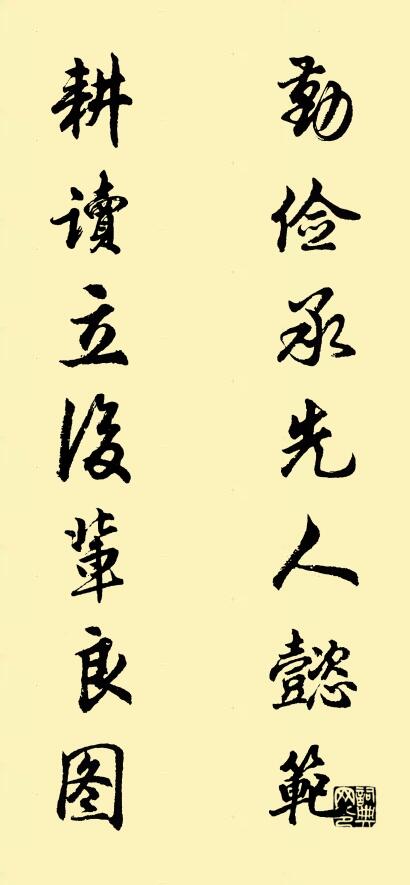 勤俭承先人懿範
耕讀立後輩良图
詞典网